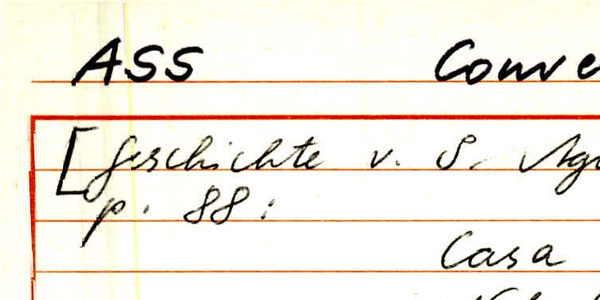 ASS Conve
[Geschichte v. S. Ag
p. 88:
Casa